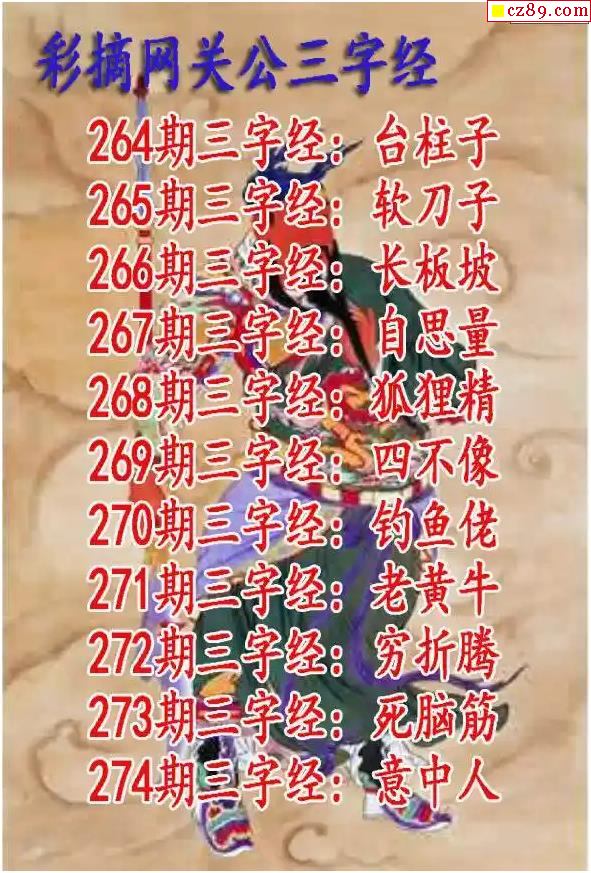 cz89.com
彩摘网关公三字经
264期三字经：台柱子
265期三字经：软刀子
266期三字经：长板坡
267期三字经：自思量
268期三字经：狐狸精
269期三字经：四不像
270期三字经：钓鱼佬
271期三字经：老黄牛
272期三字经：穷折腾
273期三字经：死脑筋
274期三字经：意中人